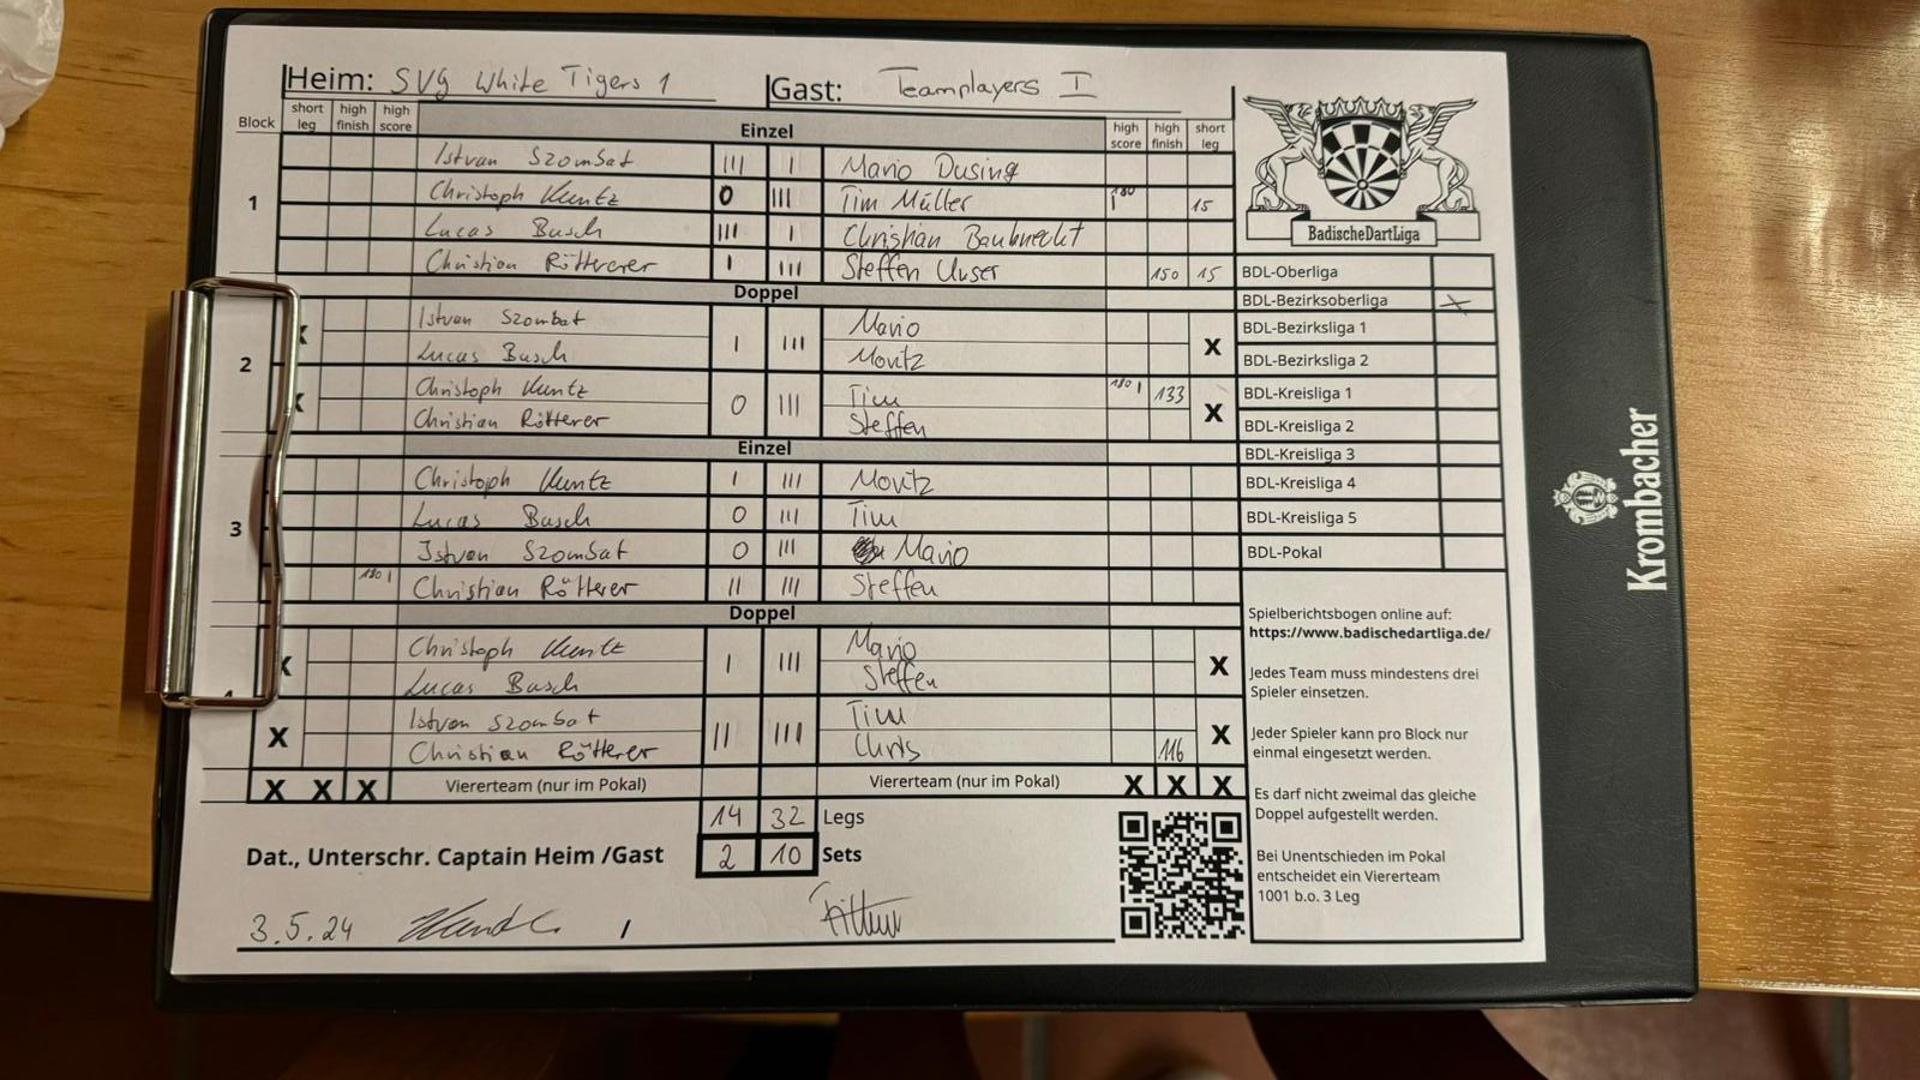 Heim: SVG White Tigers 1 Gast: Teamplayers I
Block short leg high finish high score Einzel high score high finish short leg
Istvan Szombat III I Mario Dusing
1 Christoph Kuntz 0 III Tim Müller 180 I 15
Lucas Busch III I Christian Bauknecht
Christian Rötterer I III Steffen Unser 150 15
Doppel
2
Istvan Szombat I III Mario X
Lucas Busch Moritz
Christoph Kuntz 0 III Tim 180 I 133 X
Christian Rötterer Steffen
Einzel
3
Christoph Kuntz I III Moritz
Lucas Busch 0 III Tim
Istvan Szombat 0 III Mario
180 I Christian Rötterer II III Steffen
Doppel
Christoph Kuntz I III Mario X
Lucas Busch Steffen
X Istvan Szombat II III Tim X
Christian Rötterer Chris 116
X X X Viererteam (nur im Pokal) Viererteam (nur im Pokal) X X X
14 32 Legs
Dat., Unterschr. Captain Heim /Gast 2 10 Sets
3.5.24 /
BadischeDartLiga
BDL-Oberliga
BDL-Bezirksoberliga X
BDL-Bezirksliga 1
BDL-Bezirksliga 2
BDL-Kreisliga 1
BDL-Kreisliga 2
BDL-Kreisliga 3
BDL-Kreisliga 4
BDL-Kreisliga 5
BDL-Pokal
Spielberichtsbogen online auf:
https://www.badischedartliga.de/
Jedes Team muss mindestens drei
Spieler einsetzen.
Jeder Spieler kann pro Block nur
einmal eingesetzt werden.
Es darf nicht zweimal das gleiche
Doppel aufgestellt werden.
Bei Unentschieden im Pokal
entscheidet ein Viererteam
1001 b.o. 3 Leg
Krombacher